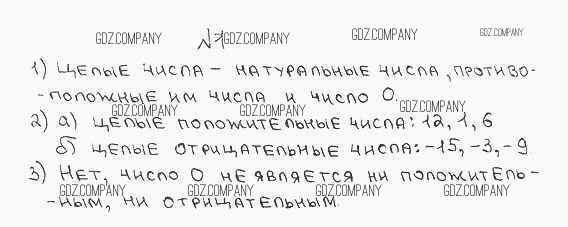 GDZ.COMPANY №1 GDZ.COMPANY GDZ.COMPANY GDZ.COMPANY
1) ЦЕЛЫЕ ЧИСЛА – НАТУРАЛЬНЫЕ ЧИСЛА, ПРОТИВО-
-ПОЛОЖНЫЕ ИМ ЧИСЛА И ЧИСЛО 0.
GDZ.COMPANY GDZ.COMPANY GDZ.COMPANY
2) а) ЦЕЛЫЕ ПОЛОЖИТЕЛЬНЫЕ ЧИСЛА: 12, 1, 6
б) ЦЕЛЫЕ ОТРИЦАТЕЛЬНЫЕ ЧИСЛА: -15, -3, -9
3) НЕТ, ЧИСЛО 0 НЕ ЯВЛЯЕТСЯ НИ ПОЛОЖИТЕЛЬ-
GDZ.COMPANY GDZ.COMPANY GDZ.COMPANY GDZ.COMPANY
-НЫМ, НИ ОТРИЦАТЕЛЬНЫМ.